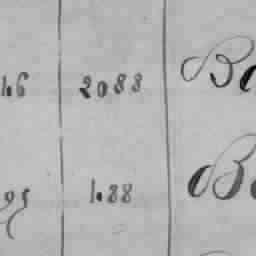 46 2088 Ba
95 1.88 Be